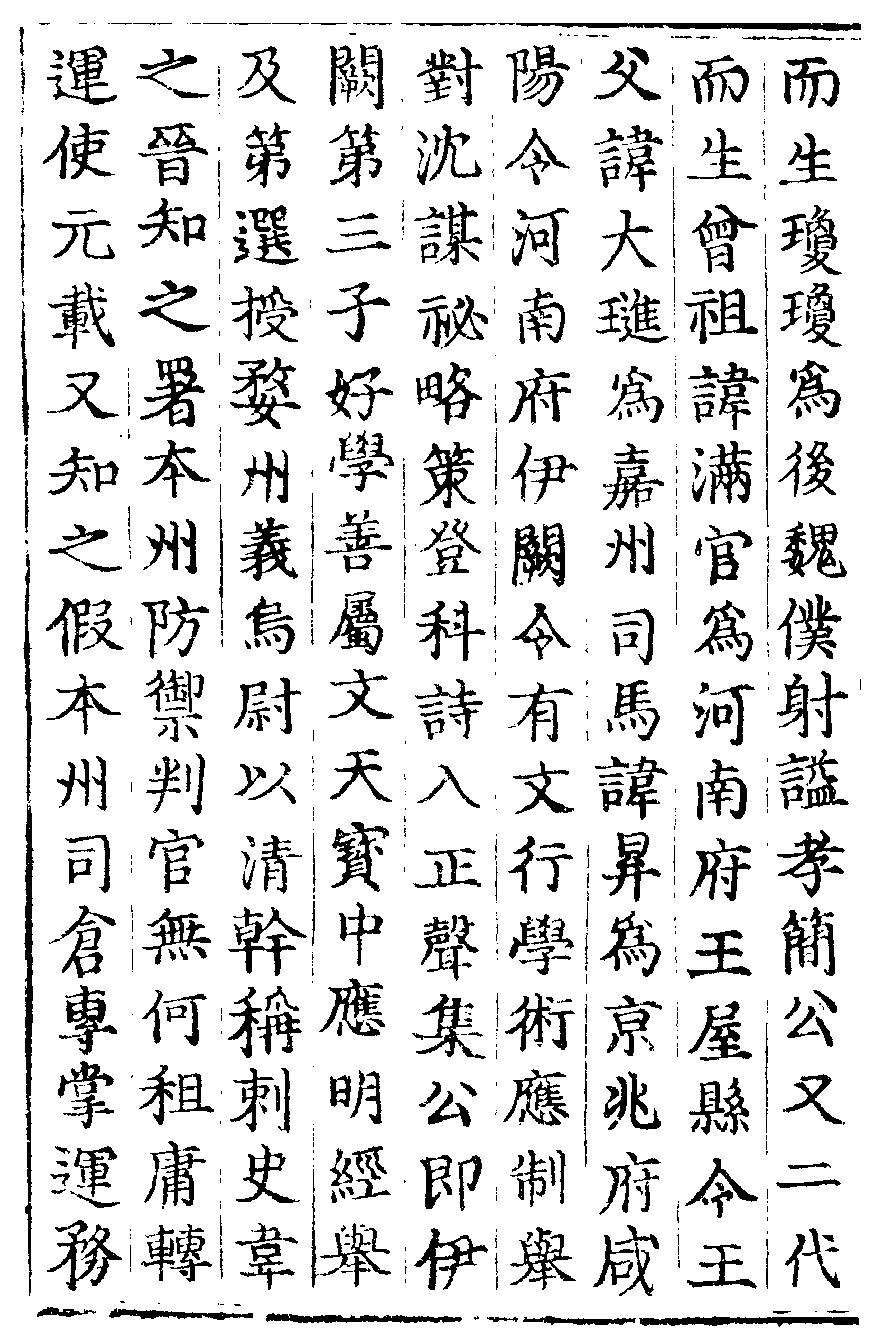 而生瓊瓊為後魏僕射謚孝簡公又二代
而生曾祖諱滿官為河南府王屋縣令王
父諱大璡為嘉州司馬諱昇為京兆府咸
陽令河南府伊闕令有文行學術應制舉
對沈謀祕略策登科詩入正聲集公即伊
闕第三子好學善屬文天寶中應明經舉
及第選授婺州義烏尉以清幹稱刺史韋
之晉知之署本州防禦判官無何租庸轉
運使元載又知之假本州司倉專掌運務